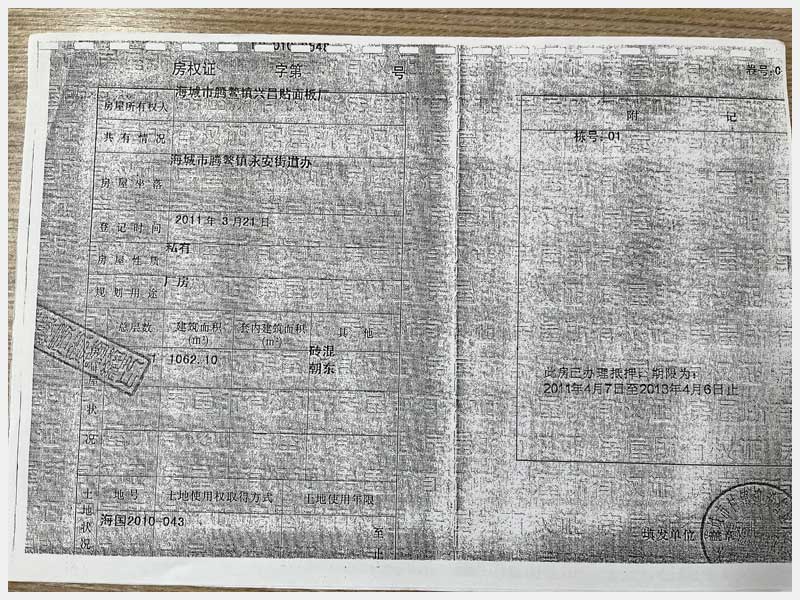 房权证 字第 号
房屋所有权人 海城市腾鳌镇兴昌贴面板厂
共有情况
房屋坐落 海城市腾鳌镇永安街道办
登记时间 2011年3月21日
房屋性质 私有
规划用途 厂房
总层数 建筑面积(m²) 套内建筑面积(m²) 其他
1 1062.10 砖混
朝东
屋
状
况
土地状况 地号 土地使用权取得方式 土地使用年限
海国2010-043 至
止
卷号:0
附 记
栋号:01
此房已办理抵押,期限为:
2011年4月7日至2013年4月6日止
填发单位(盖章)